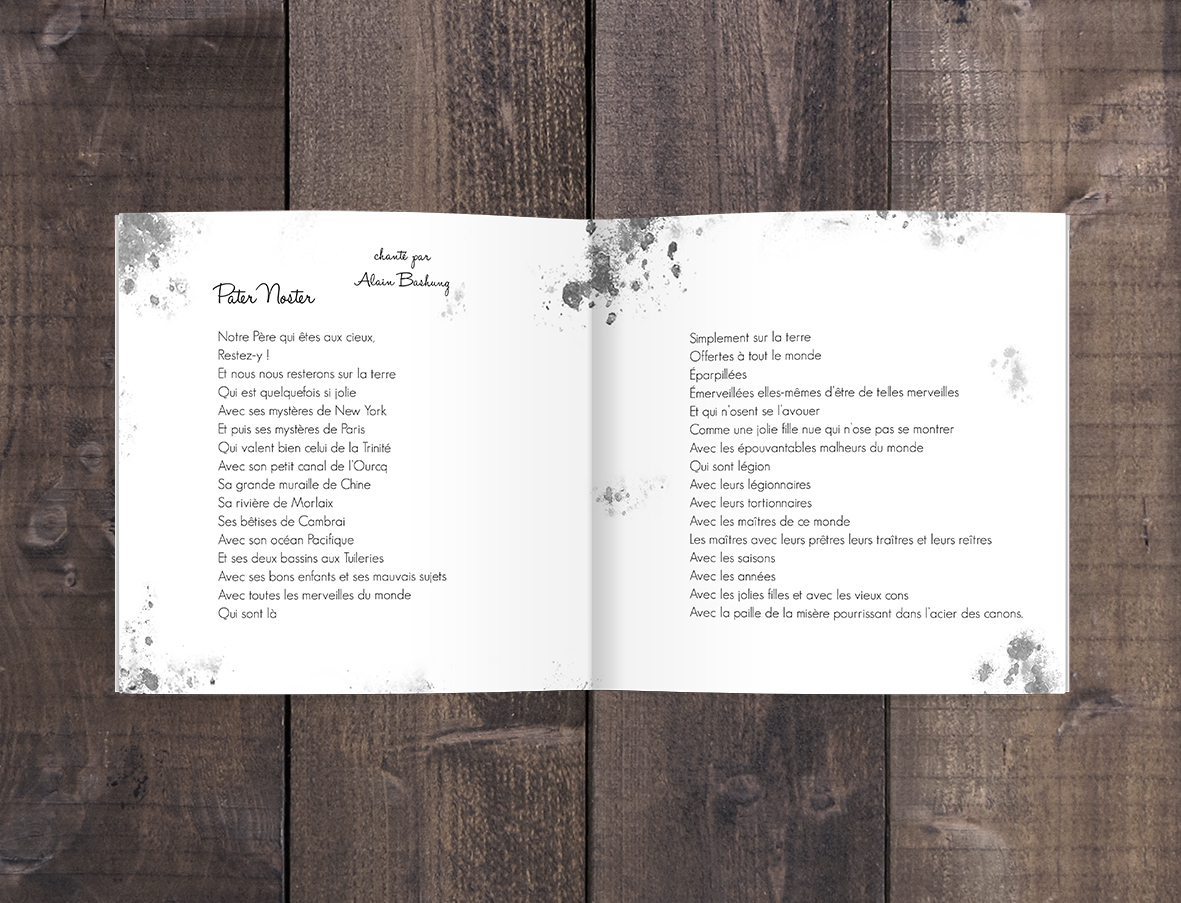 chanté par
Alain Bashung
Pater Noster
Notre Père qui êtes aux cieux,
Restez-y !
Et nous nous resterons sur la terre
Qui est quelquefois si jolie
Avec ses mystères de New York
Et puis ses mystères de Paris
Qui valent bien celui de la Trinité
Avec son petit canal de l'Ourcq
Sa grande muraille de Chine
Sa rivière de Morlaix
Ses bêtises de Cambrai
Avec son océan Pacifique
Et ses deux bassins aux Tuileries
Avec ses bons enfants et ses mauvais sujets
Avec toutes les merveilles du monde
Qui sont là
Simplement sur la terre
Offertes à tout le monde
Éparpillées
Émerveillées elles-mêmes d'être de telles merveilles
Et qui n'osent se l'avouer
Comme une jolie fille nue qui n'ose pas se montrer
Avec les épouvantables malheurs du monde
Qui sont légion
Avec leurs légionnaires
Avec leurs tortionnaires
Avec les maîtres de ce monde
Les maîtres avec leurs prêtres leurs traîtres et leurs reîtres
Avec les saisons
Avec les années
Avec les jolies filles et avec les vieux cons
Avec la paille de la misère pourrissant dans l'acier des canons.